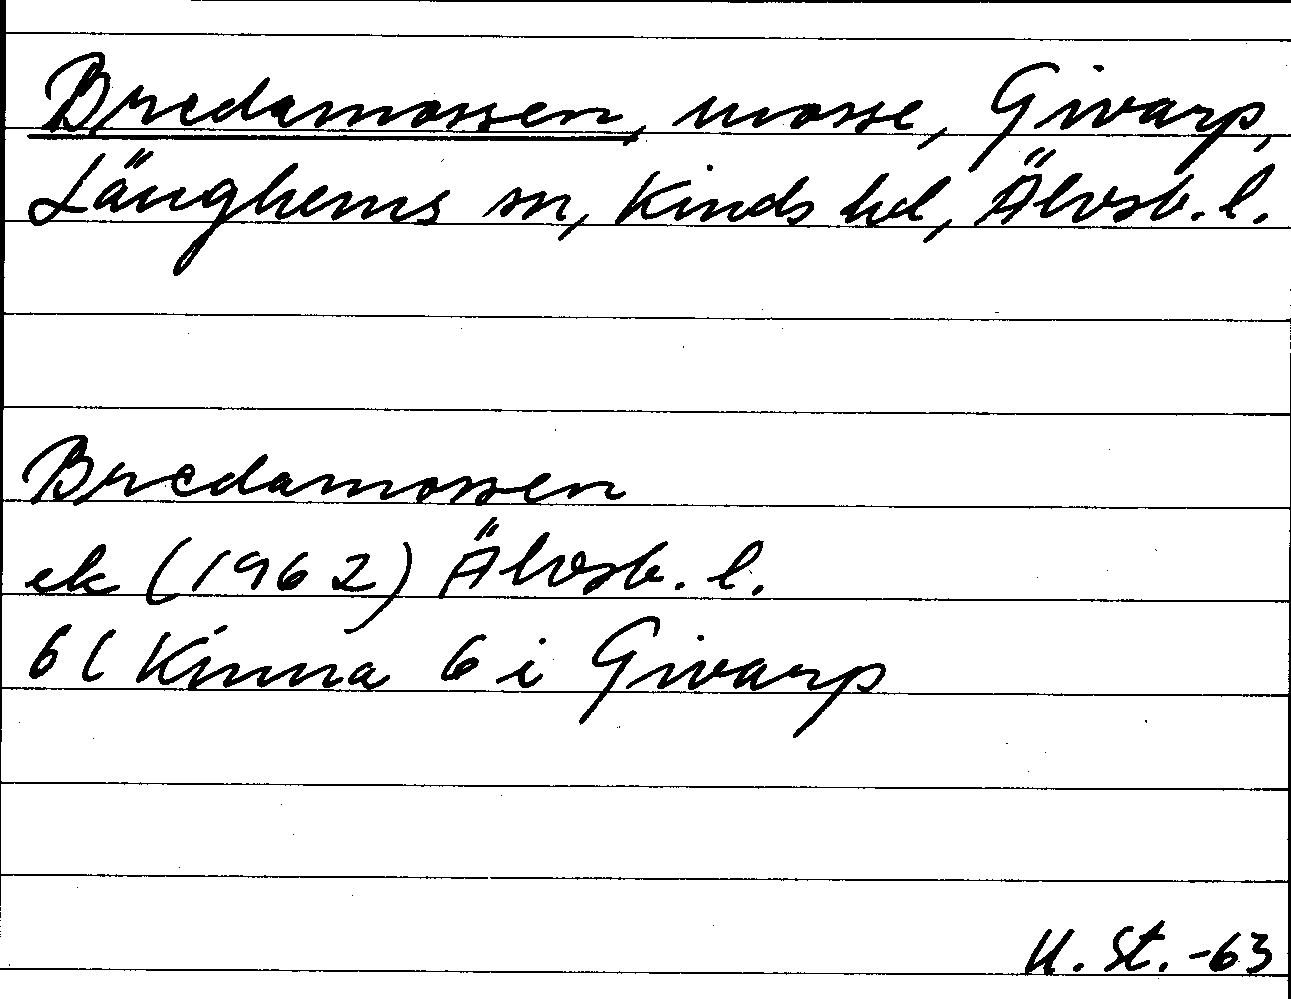 Bredamossen, mosse, Givarp,
Länghems sn, Kinds hd, Älvsb. l.
Bredamossen
ek (1962) Älvsb. l.
6C Kinna 6 i Givarp
U. St. -63